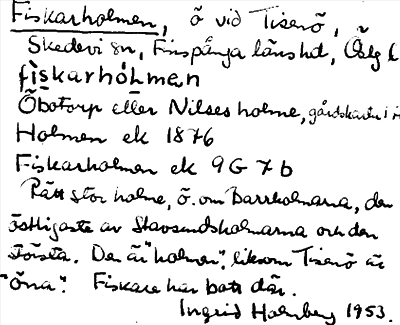 Fiskarholmen, ö vid Tiserö,
Skedevi sn, Finspånga läns hd, Östg l
fiskarhólmen
Öbotorp eller Nilses holme, gårdskarta i
Holmen ek 1876
Fiskarholmen ek 9G 7b
Rätt stor holme, ö. om Barrholmarna, den
östligaste av Stavsundsholmarna och den
största. Den är "holmen", liksom Tiserö är
"öna". Fiskare har bott där.
Ingrid Holmberg 1953.